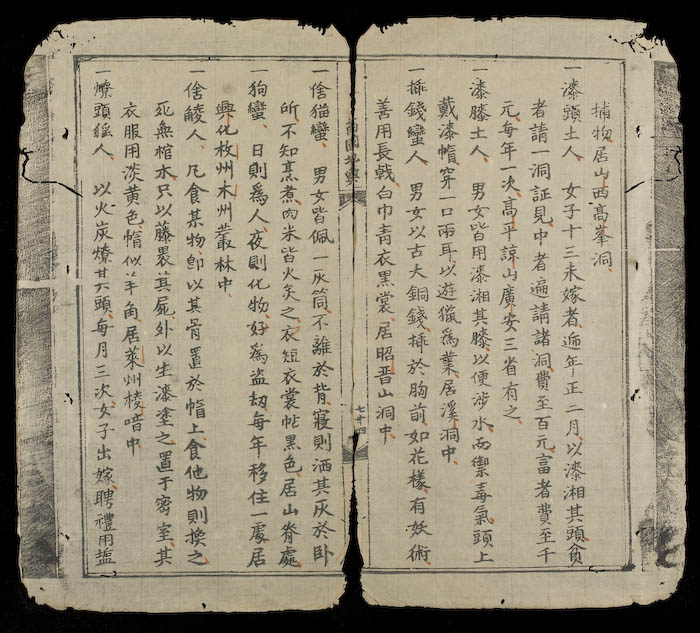 捕物居山西高峯洞
一漆頭土人 女子十三未嫁者遞年正二月以漆湘其頭貧
者請一洞証見中者遍請諸洞費至百元富者費至千
元每年一次高平諒山廣安三省有之
一漆膝土人 男女皆用漆湘其膝以便涉水而禦毒氣頭上
戴漆帽穿一口兩耳以遊獵爲業居溪洞中
一揷錢蠻人 男女以古大銅錢揷於胸前如花樣有妖術
善用長戟白巾青衣黑裳居昭晋山洞中
南國地輿
七十四
一倽猫蠻 男女皆佩一灰筒不離於背寢則洒其灰於卧
所不知烹煮肉米皆火炙之衣短衣裳帖黑色居山脊處
一狗蠻 日則爲人夜則化物好爲盗刼每年移住一處居
興化枚州木州叢林中
一倽人 凡食某物即以其骨置於帽上食他物則換之
死無棺木只以藤裹其屍外以生漆塗之置于密室其
衣服用淡黄色帽似羊角居萊州棱喑中
一燎頭猺人 以火炭燎其頭每月三次女子出嫁聘禮用塩